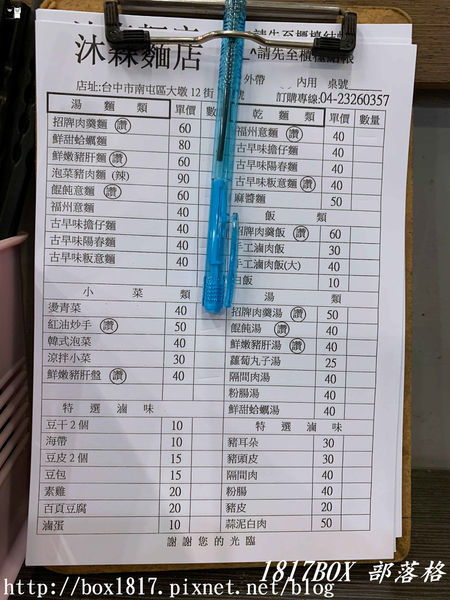 沐森麵店
請先至櫃檯結帳
外帶 內用 桌號
店址:台中市南屯區大墩12街 號
訂購專線:04-23260357
湯 麵 類 單價 數
招牌肉羹麵 讚 60
鮮甜蛤蠣麵 80
鮮嫩豬肝麵 讚 60
泡菜豬肉麵 (辣) 90
餛飩意麵 讚 60
福州意麵 40
古早味擔仔麵 40
古早味陽春麵 40
古早味粄意麵 40
乾 麵 類 單價 數量
福州意麵 讚 40
古早味擔仔麵 40
古早味陽春麵 40
古早味粄意麵 讚 40
麻醬麵 50
飯 類
招牌肉羹飯 讚 60
手工滷肉飯 30
手工滷肉飯(大) 40
白飯 10
小 菜 類
燙青菜 40
紅油炒手 讚 50
韓式泡菜 40
涼拌小菜 30
鮮嫩豬肝盤 讚 40
湯 類
招牌肉羹湯 讚 50
餛飩湯 讚 40
鮮嫩豬肝湯 讚 40
蘿蔔丸子湯 25
隔間肉湯 40
粉腸湯 40
鮮甜蛤蠣湯 40
特 選 滷 味
豆干2個 10
海帶 10
豆皮2個 15
豆包 15
素雞 20
百頁豆腐 20
滷蛋 10
特 選 滷 味
豬耳朵 30
豬頭皮 30
隔間肉 40
粉腸 40
豬皮 20
蒜泥白肉 50
謝 謝 您 的 光 臨
1817BOX 部落格
http://box1817.pixnet.net/blog